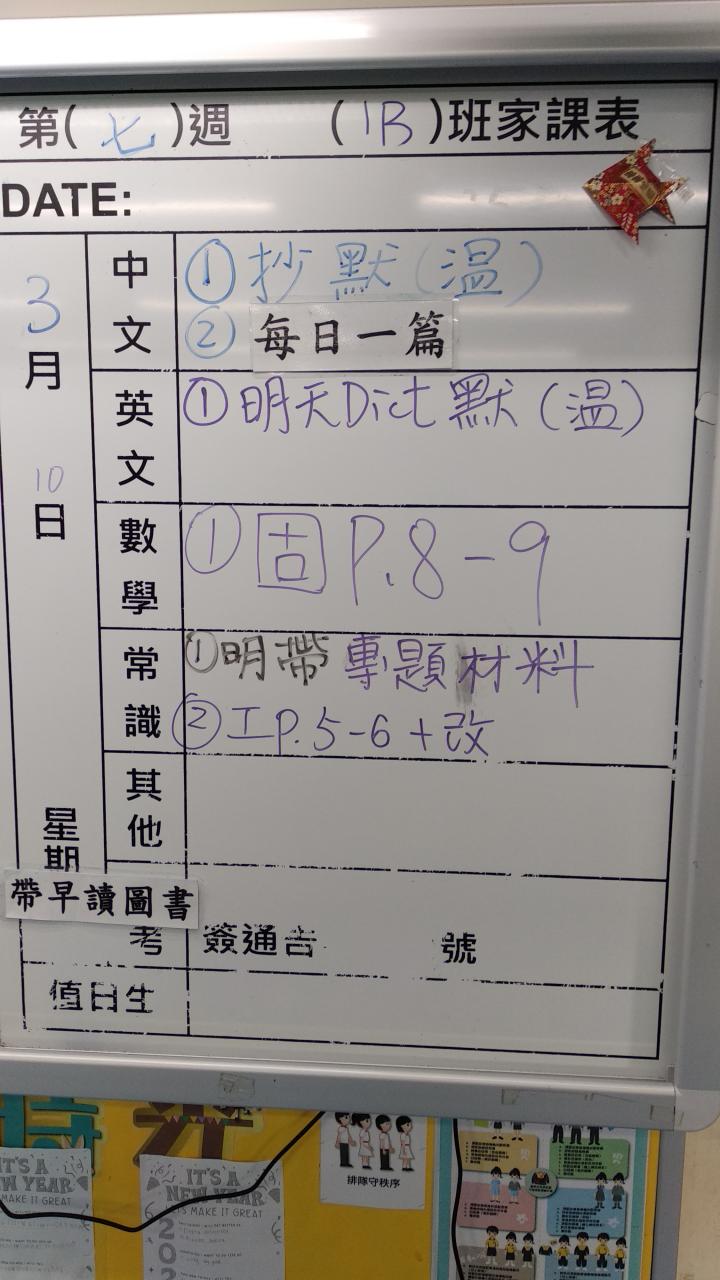 第(七)週 (1B)班家課表
DATE:
3月10日
星期
中文
①抄默(溫)
②每日一篇
英文
①明天Dict默(溫)
數學
①固P.8-9
常識
①明帶專題材料
②工P.5-6+改
其他
帶早讀圖書
考
簽通告 號
值日生
IT'S A
NEW YEAR
MAKE IT GREAT
IT'S A
NEW YEAR
LET'S MAKE IT GREAT
202
排隊守秩序